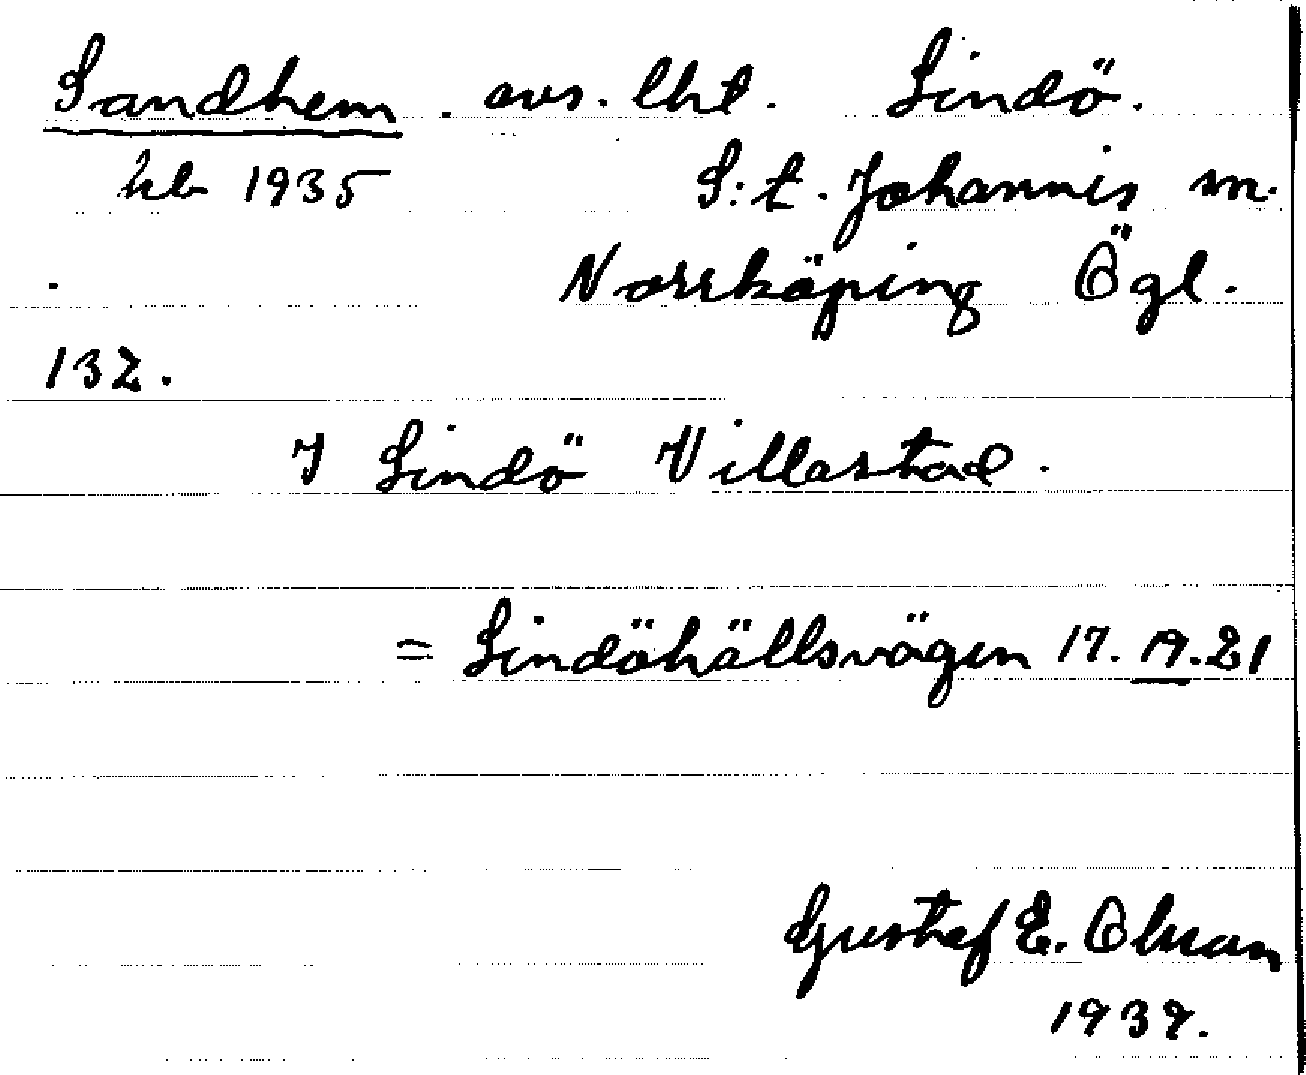 Sandhem. avs. lht. Lindö.
kb 1935 S:t. Johannis m.
Norrköping Ögl.
132.
I Lindö Villastad.
= Lindöhällsvägen 17. 19. 21
Gustaf E. Olsson
1939.